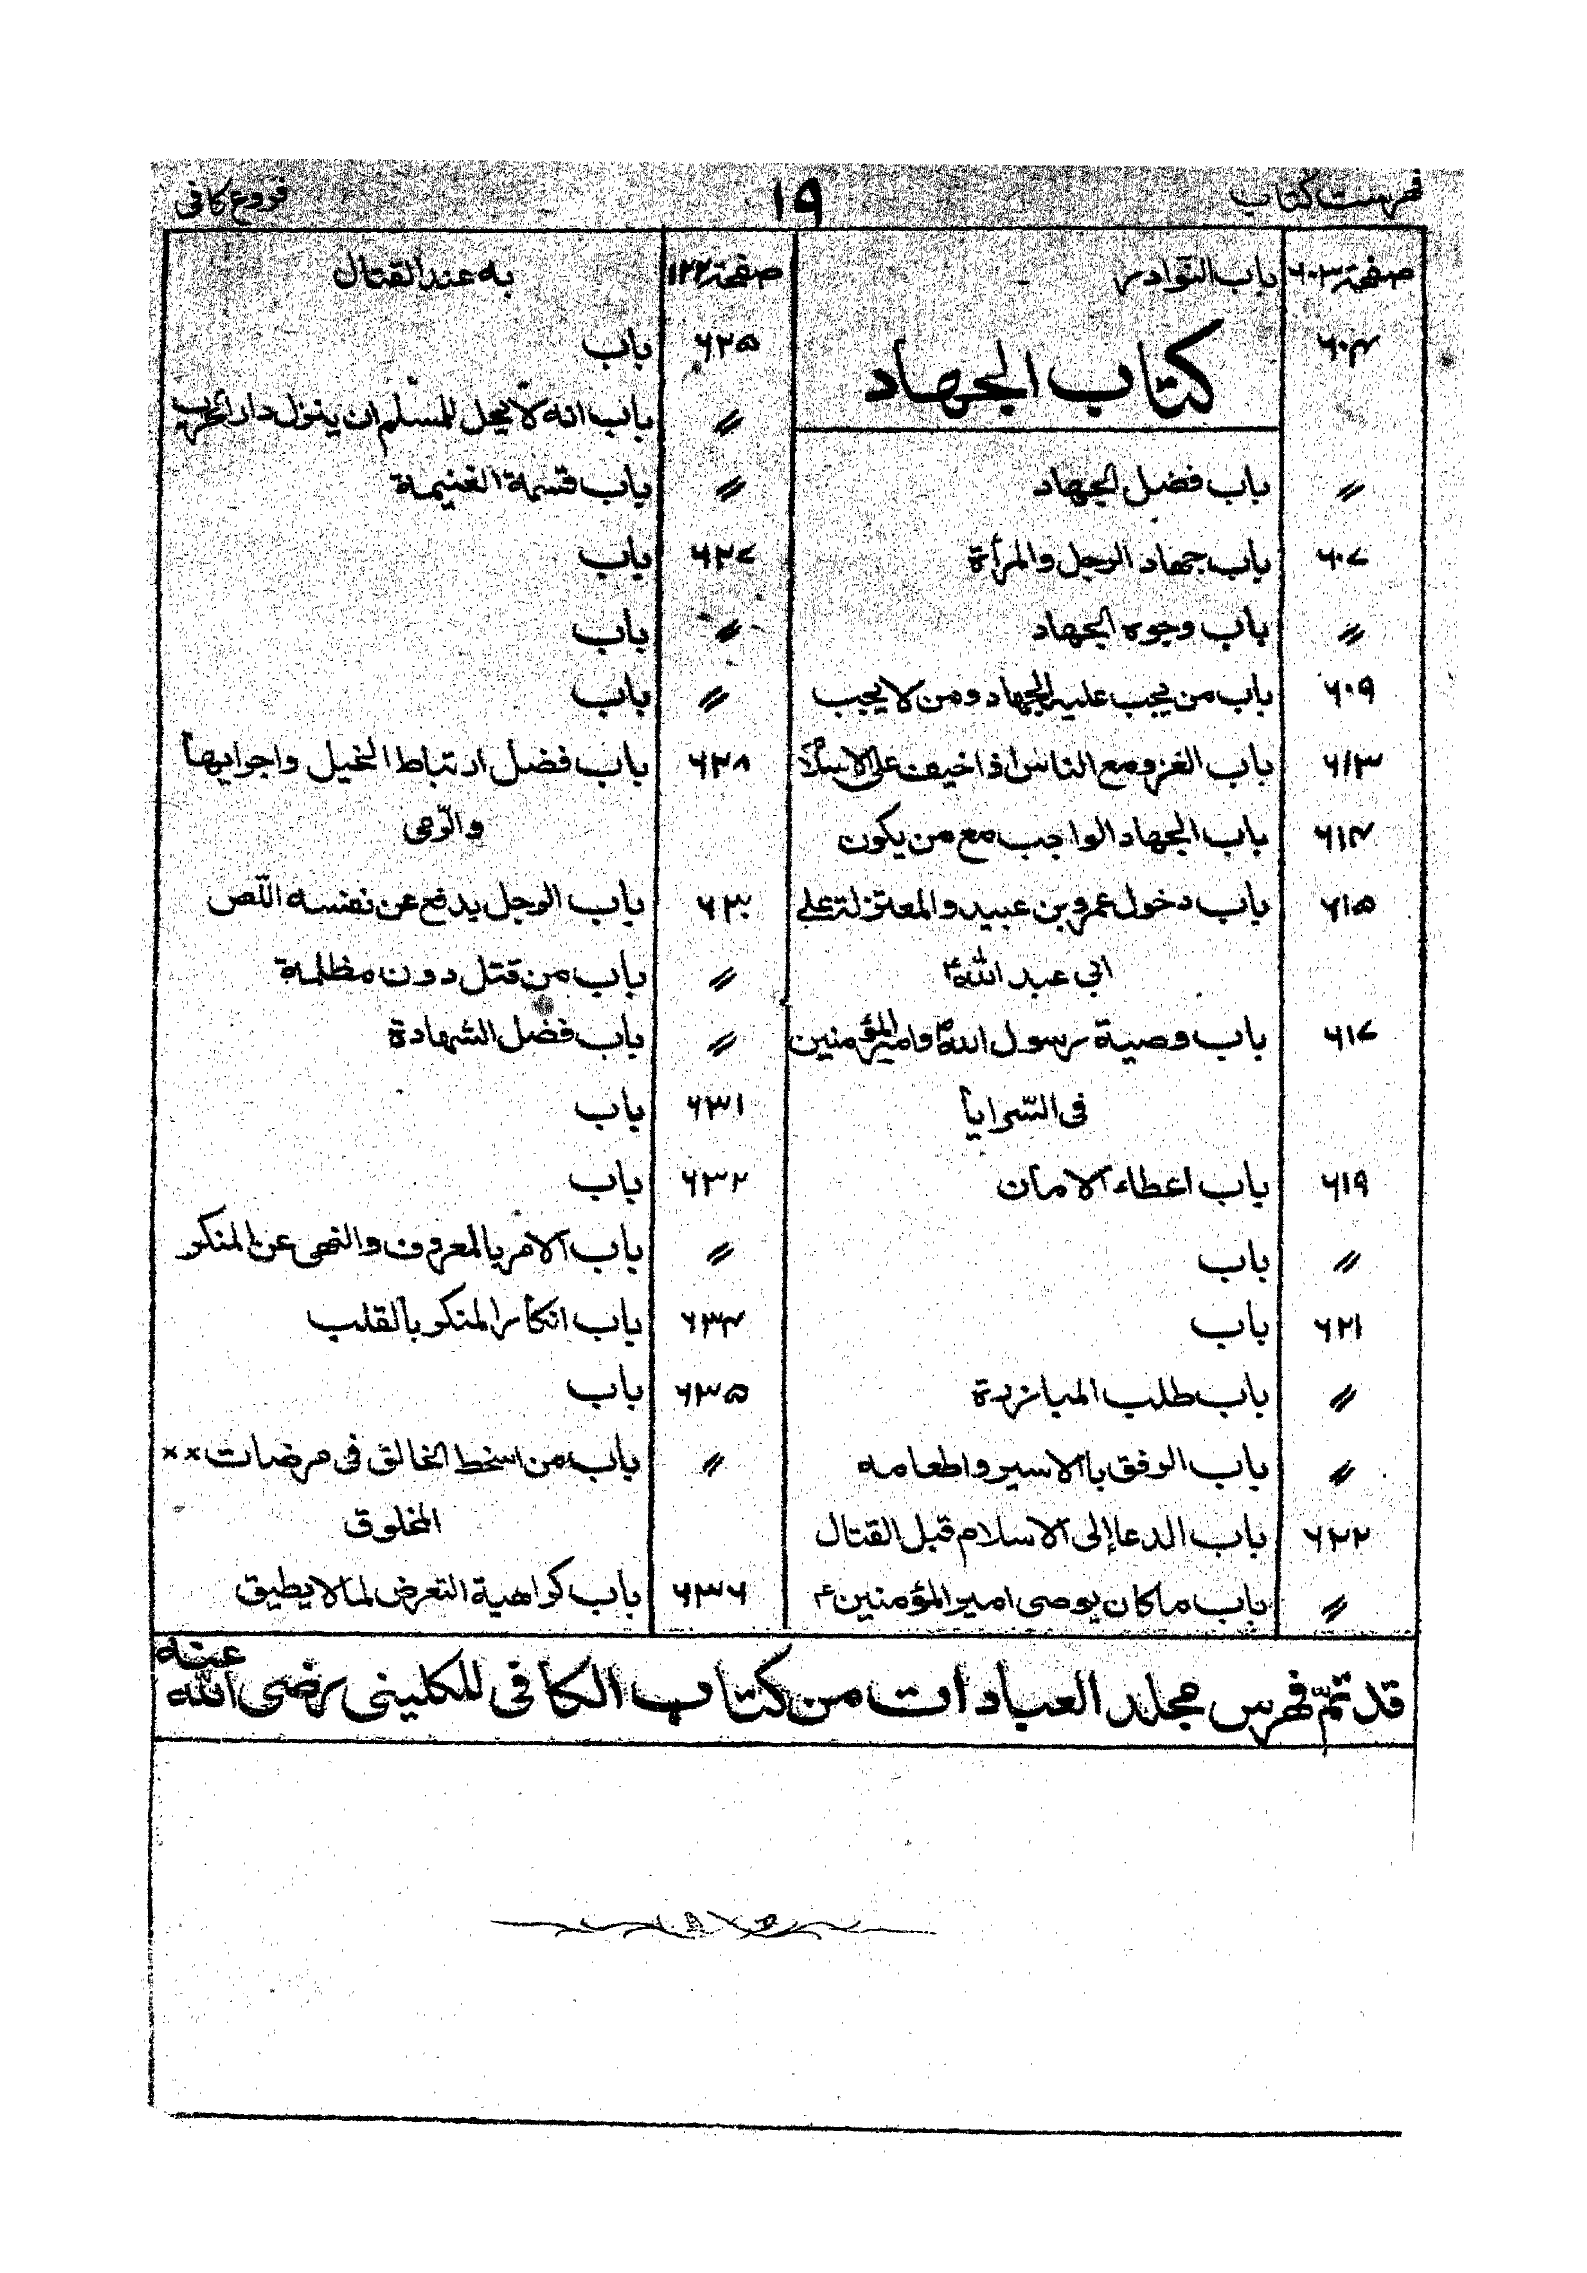 فهرست كتاب
١٩
فروع كافي
صفحة ٦٠٣ باب النوادر
٦٠٤ كتاب الجهاد
〃 باب فضل الجهاد
٦٠٧ باب جهاد الرجل والمرأة
〃 باب وجوه الجهاد
٦٠٩ باب من يجب عليه الجهاد ومن لا يجب
٦١٣ باب الغزو مع الناس اذا خيف على الاسلام
٦١٤ باب الجهاد الواجب مع من يكون
٦١٥ باب دخول عمرو بن عبيد والمعتزلة على
ابي عبد الله ع
٦١٧ باب وصية رسول الله ص وامير المؤمنين
فى السّرايا
٦١٩ باب اعطاء الامان
〃 باب
٦٢١ باب
〃 باب طلب المبارزة
〃 باب الرفق بالاسير واطعامه
٦٢٢ باب الدعا إلى الاسلام قبل القتال
〃 باب ما كان يوصى امير المؤمنين ع
صفحة ٦٢٢ به عند القتال
٦٢٥ باب
〃 باب انه لا يحل للمسلم ان ينزل دار الحرب
〃 باب قسمة الغنيمة
٦٢٧ باب
〃 باب
〃 باب
٦٢٨ باب فضل ارتباط الخيل واجرايها
والرّمى
٦٣٠ باب الرجل يدفع عن نفسه اللّص
〃 باب من قتل دون مظلمة
〃 باب فضل الشهادة
٦٣١ باب
٦٣٢ باب
〃 باب الامر بالمعروف والنهى عن المنكر
٦٣٤ باب انكار المنكر بالقلب
٦٣٥ باب
〃 باب من اسخط الخالق فى مرضات ××
المخلوق
٦٣٦ باب كراهية التعرض لما لا يطيق
قد تمّ فهرس مجلد العبادات من كتاب الكافى للكلينى رضى الله عنه